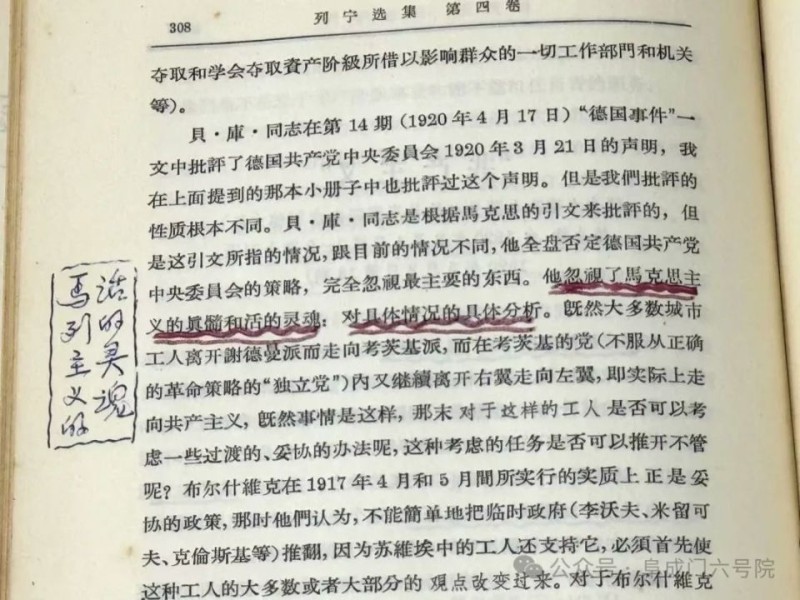 308
列宁选集 第四卷
夺取和学会夺取資产阶級所借以影响群众的一切工作部門和机关
等)。
貝·庫·同志在第 14 期 (1920 年 4 月 17 日) “德国事件”一
文中批評了德国共产党中央委員会 1920 年 3 月 21 日的声明，我
在上面提到的那本小册子中也批評过这个声明。但是我們批評的
性质根本不同。貝·庫·同志是根据馬克思的引文来批評的，但
是这引文所指的情况，跟目前的情况不同，他全盘否定德国共产党
中央委員会的策略，完全忽视最主要的东西。他忽視了馬克思主
义的眞髓和活的灵魂：对具体情况的具体分析。旣然大多数城市
工人离开謝德曼派而走向考茨基派，而在考茨基的党(不服从正确
的革命策略的“独立党”)內又継續离开右翼走向左翼，即实际上走
向共产主义，旣然事情是这样，那末对于这样的工人是否可以考
虑一些过渡的、妥协的办法呢，这种考虑的任务是否可以推开不管
呢？布尔什維克在 1917 年 4 月和 5 月間所实行的实质上正是妥
协的政策，那时他們认为，不能簡单地把临时政府(李沃夫、米留可
夫、克倫斯基等)推翻，因为苏維埃中的工人还支持它，必須首先使
这种工人的大多数或者大部分的观点改变过来。对于布尔什維克
马列主义的
活的灵魂
公众号·阜成门六号院